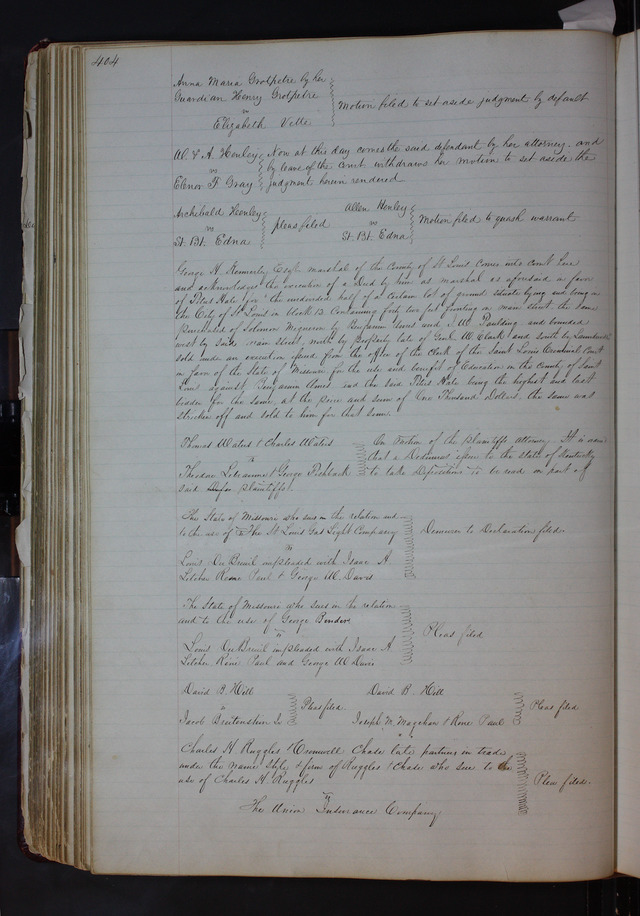 404
Anna Maria Grotpetre by her
Guardian Henry Grotpetre
vs
Elizabeth Vette
Motion filed to set aside judgment by default
W. & A. Henley
vs
Elenor F Gray
Now at this day comes the said defendant by her attorney and
by leave of the Court withdraws her motion to set aside the
judgment herein rendered
Archibald Henley
vs
St. Bt. Edna
pleas filed
Allen Henley
vs
St. Bt. Edna
Motion filed to quash warrant
George H. Kennerly Esqr. marshal of the County of St Louis Comes into court here
and acknowledges the execution of a Deed by him as marshal as aforesaid in favor
of Titus Hale for the undivided half of a certain lot of ground situate lying and being in
the City of St Louis in Block 13 Containing forty two feet fronting on main street the same
purchased of Solomon by Benjamin and J. W. Paulding and bounded
west by said main street, north by property late of Genl. W. Clark and south by
sold under an execution issued from the office of the Clerk of the Saint Louis Criminal Court
in favor of the State of Missouri for the use and benefit of Education in the County of Saint
Louis against Benjamin Ames and the said Titus Hale being the highest and last
bidder for the same, at the price and sum of One Thousand Dollars, the same was
stricken off and sold to him for that sum.
Thomas Waters & Charles Waters
vs
Theodore & George Fishback
On Motion of the plaintiffs attorney It is
that a Dedimus issue to the state of Kentucky
to take Depositions to be read on part of
said plaintiffs.
The State of Missouri who sues in the relation and
to the use of The St Louis Gas Light Company
vs
Louis DuBreuil impleaded with Isaac A
Letcher Rene Paul & George W. Davis
Demurrer to Declaration filed.
The State of Missouri who sues in the relation
and to the use of George Benders
vs
Louis DuBreuil impleaded with Isaac A
Letcher Rene Paul and George W Davis
Pleas filed
David B. Hill
vs
Jacob Breitenstein Sr
Pleas filed.
David B. Hill
Joseph W. Magehan & Rene Paul
Pleas filed
Charles H Ruggles & Cromwell Chase late partners in trade
under the name style & firm of Ruggles & Chase who sue to the
use of Charles H. Ruggles
vs
The Union Insurance Company
Plea filed.